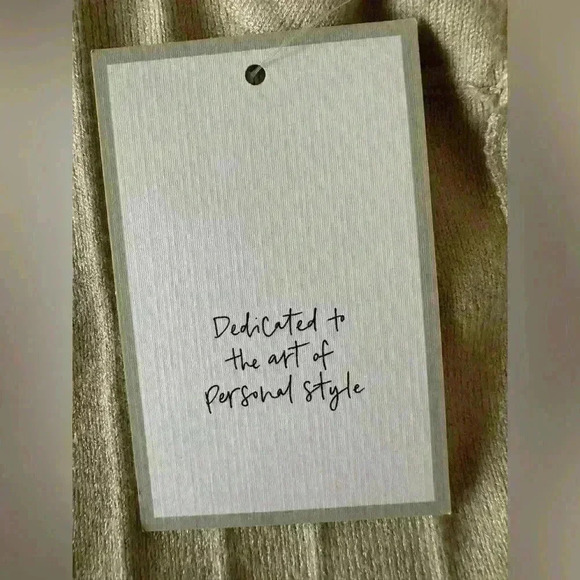 Dedicated to
the art of
personal style